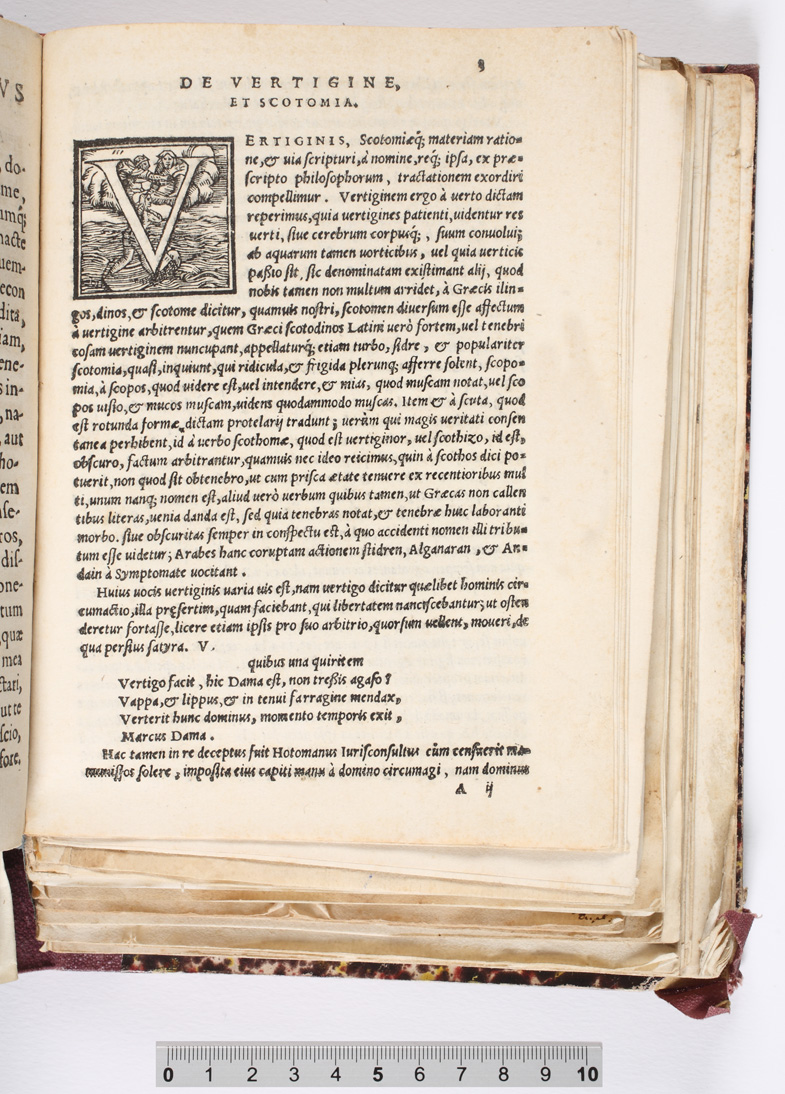 VS
do-
me,
umq́;
nacte
uem-
econ
dita,
iam,
ene-
s in-
, na-
, aut
ho-
em
nſe-
ros,
diſ-
one-
tum
, quæ
mea
ctari,
ut te
ſcio,
fore.
DE VERTIGINE,
ET SCOTOMIA.
VERTIGINIS, Scotomiæq́; materiam ratio-
ne, & uia ſcripturi, à nomine, req́; ipſa, ex præ-
ſcripto philoſophorum, tractationem exordiri
compellimur. Vertiginem ergo à uerto dictam
reperimus, quia uertigines patienti, uidentur res
uerti, ſiue cerebrum corpusq́;, ſuum conuolui;
ab aquarum tamen uorticibus, uel quia uerticis
paßio ſit, ſic denominatam exiſtimant alij, quod
nobis tamen non multum arridet, à Græcis ilin-
gos, dinos, & ſcotome dicitur, quamuis noſtri, ſcotomen diuerſum eſſe affectum
à uertigine arbitrentur, quem Græci ſcotodinos Latini uerò fortem, uel tenebri
coſam uertiginem nuncupant, appellaturq́; etiam turbo, ſidre, & populariter
ſcotomia, quaſi, inquiunt, qui ridicula, & frigida plerunq; afferre ſolent, ſcopo-
mia, à ſcopos, quod uidere eſt, uel intendere, & mias, quod muſcam notat, uel ſco
pos uiſio, & mucos muſcam, uidens quodammodo muſcas. Item & à ſcuta, quod
eſt rotunda formæ, dictam protelarij tradunt; uerùm qui magis ueritati conſen
tanea perhibent, id à uerbo ſcothomæ, quod eſt uertiginor, uel ſcothizo, id eſt,
obſcuro, factum arbitrantur, quamuis nec ideo reicimus, quin à ſcothos dici po-
tuerit, non quod ſit obtenebro, ut cum priſca ætate tenuere ex recentioribus mul
ti, unum nanq; nomen eſt, aliud uerò uerbum quibus tamen, ut Græcas non callen
tibus literas, uenia danda eſt, ſed quia tenebras notat, & tenebræ huic laboranti
morbo. ſiue obſcuritas ſemper in conſpectu eſt, à quo accidenti nomen illi tribu-
tum eſſe uidetur; Arabes hanc coruptam actionem ſtidren, Alganaran, & An-
dain à Symptomate uocitant.
Huius uocis uertiginis uaria uis eſt, nam uertigo dicitur quælibet hominis cir-
cumactio, illa pręſertim, quam faciebant, qui libertatem nanciſcebantur; ut oſten
deretur fortaſſe, licere etiam ipſis pro ſuo arbitrio, quorſum uellent, moueri, de
qua perſius ſatyra. V.
quibus una quiritem
Vertigo facit, hic Dama eſt, non treßis agaſo?
Vappa, & lippus, & in tenui farragine mendax,
Verterit hunc dominus, momento temporis exit,
Marcus Dama.
Hac tamen in re deceptus fuit Hotomanus Iuriſconſultus cùm cenſuerit ma-
numiſſos ſolere, impoſita eius capiti manu à domino circumagi, nam dominus
A ij
0 1 2 3 4 5 6 7 8 9 10